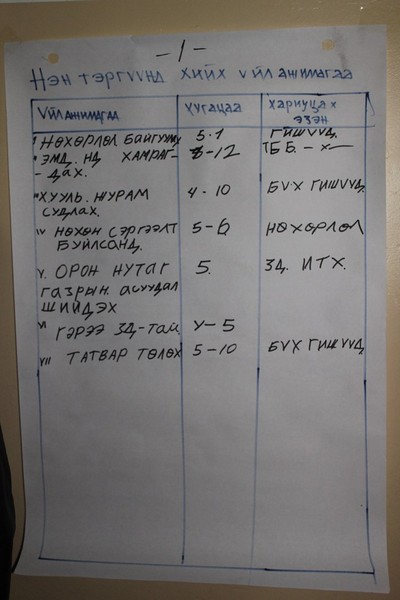 -1-
Нэн тэргүүнд хийх үйл ажиллагаа
Үйл ажиллагаа
Хугацаа
Хариуцах
эзэн
I НӨХӨРЛӨЛ БАЙГУУЛАХ 5-1 ГИШҮҮД.
II ЭМД. НД ХАМРАГ- 5-12 ТББ. -x-
- ДАХ.
III ХУУЛЬ. ЖУРАМ 4-10 БҮХ ГИШҮҮД
СУДЛАХ.
IV НӨХӨН СЭРГЭЭЛТ 5-6 НӨХӨРЛӨЛ
БУЙЛСАНД.
V. ОРОН НУТАГ 5. ЗД. ИТХ.
ГАЗРЫН АСУУДАЛ
ШИЙДЭХ
VI ГЭРЭЭ ЗД-ТАЙ 4-5
VII ТАТВАР ТӨЛӨХ 5-10 БҮХ ГИШҮҮД